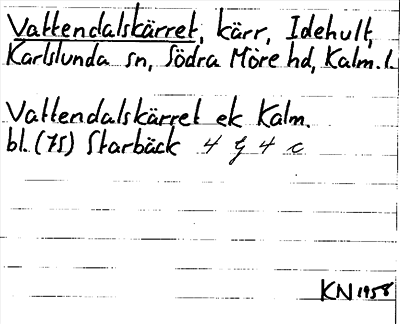 Vattendalskärret, kärr, Idehult,
Karlslunda sn, Södra Möre hd, Kalm. l.
Vattendalskärret ek Kalm.
bl. (75) Starbäck 4 G 4 c
KN 1958